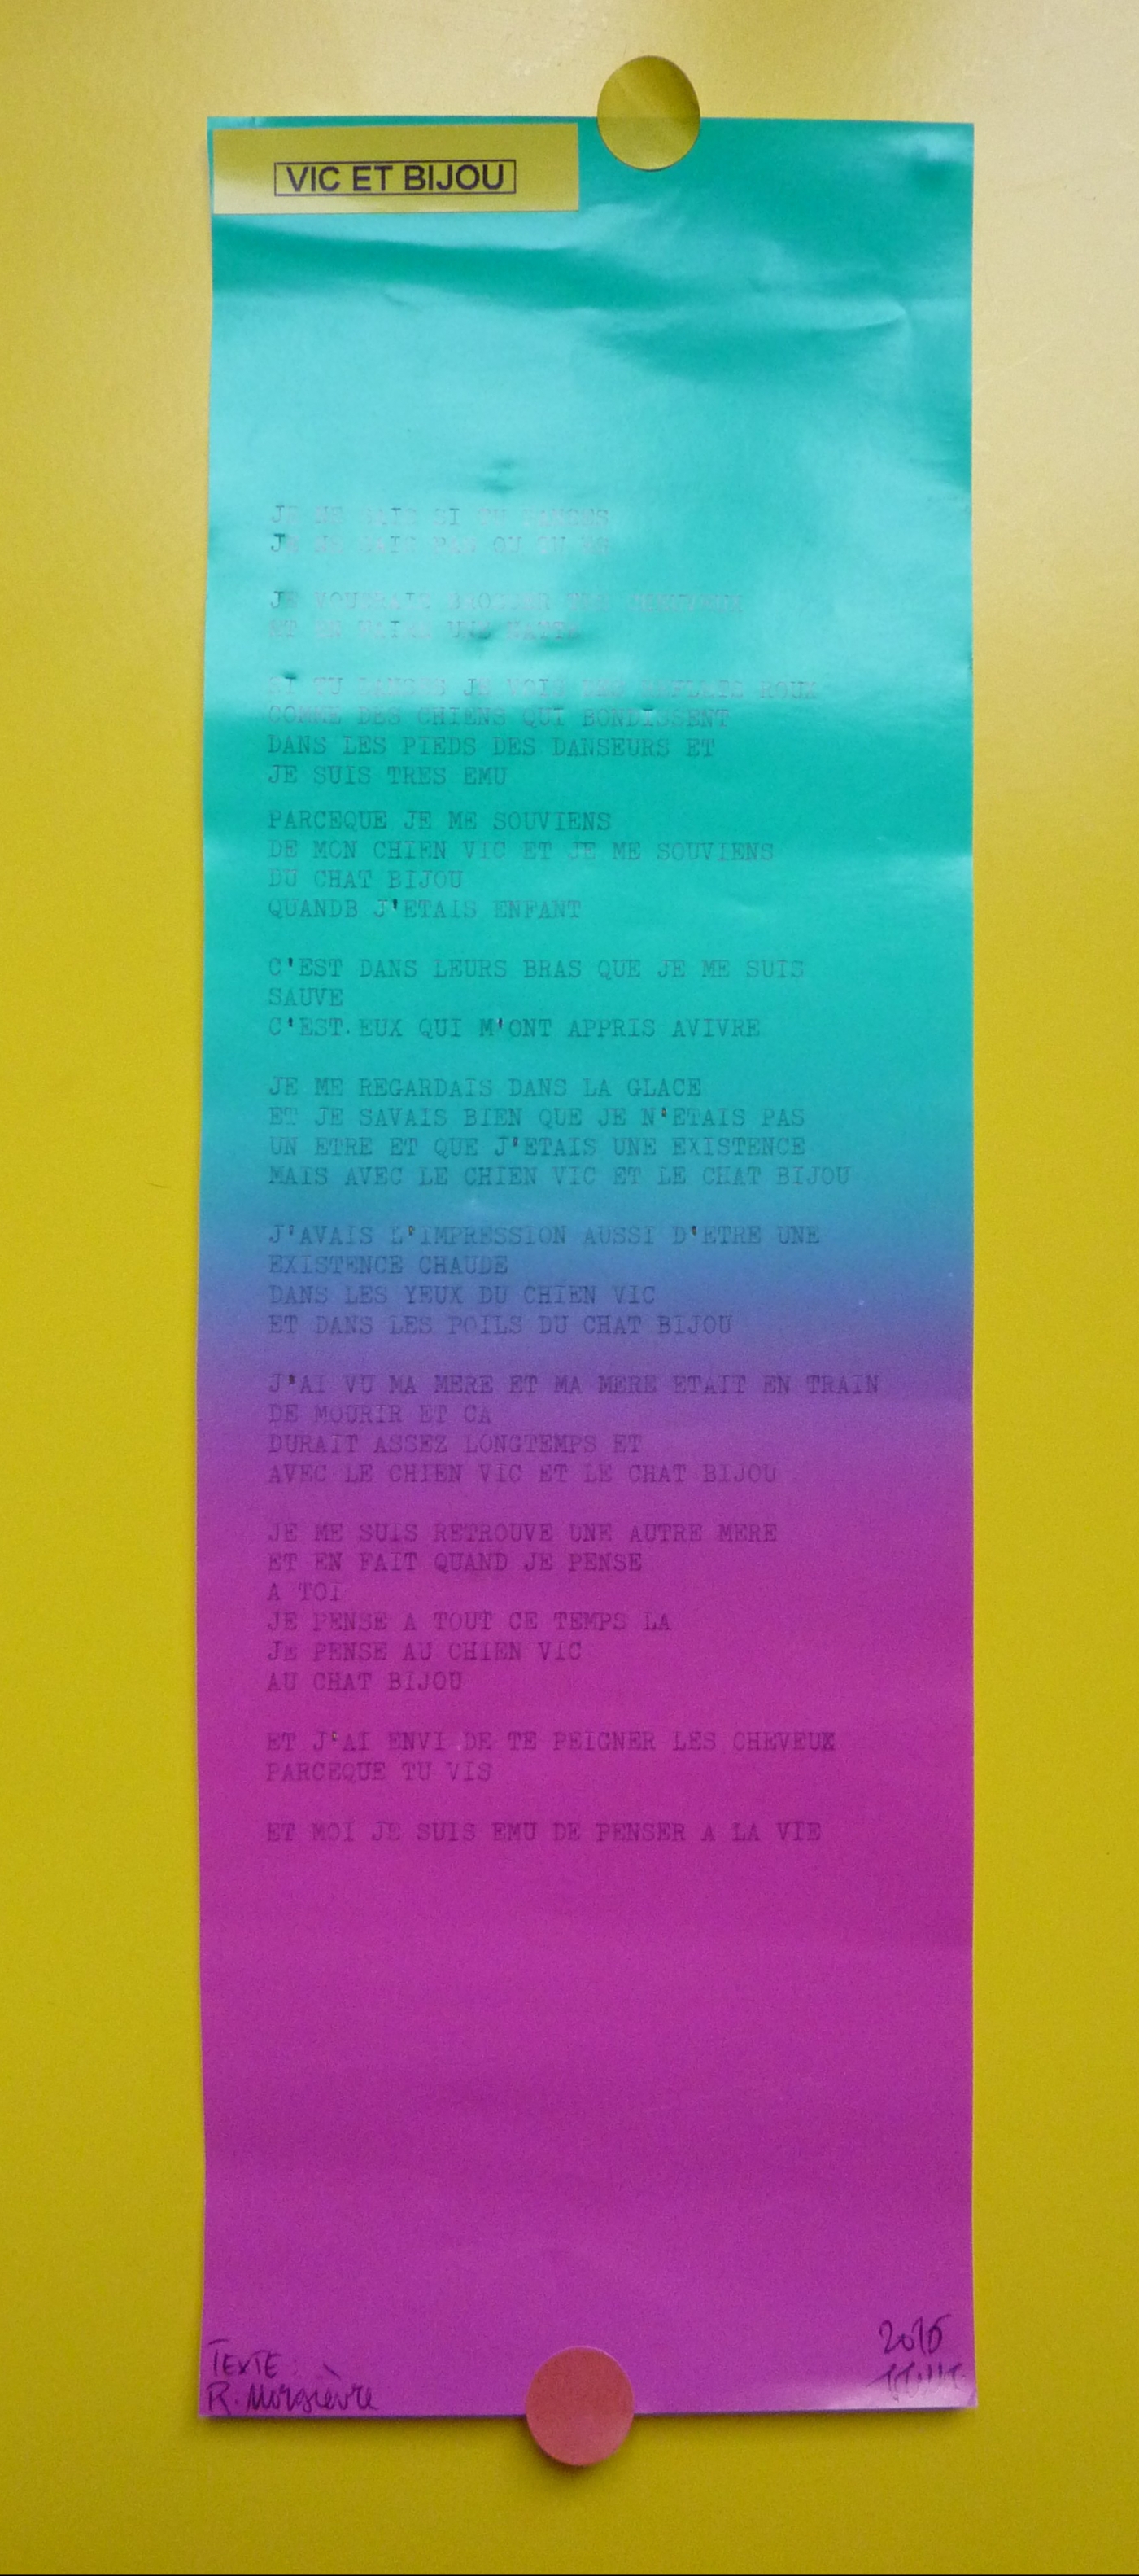 VIC ET BIJOU
JE NE SAIS SI TU DANSES
JE NE SAIS PAS OU TU ES
JE VOUDRAIS BROSSER TES CHEVEUX
ET EN FAIRE UNE NATTE
SI TU DANSES JE VOIS DES REFLETS ROUX
COMME DES CHIENS QUI BONDISSENT
DANS LES PIEDS DES DANSEURS ET
JE SUIS TRES EMU
PARCEQUE JE ME SOUVIENS
DE MON CHIEN VIC ET JE ME SOUVIENS
DU CHAT BIJOU
QUANDB J'ETAIS ENFANT
C'EST DANS LEURS BRAS QUE JE ME SUIS
SAUVE
C'EST.EUX QUI M'ONT APPRIS AVIVRE
JE ME REGARDAIS DANS LA GLACE
ET JE SAVAIS BIEN QUE JE N'ETAIS PAS
UN ETRE ET QUE J'ETAIS UNE EXISTENCE
MAIS AVEC LE CHIEN VIC ET LE CHAT BIJOU
J'AVAIS L'IMPRESSION AUSSI D'ETRE UNE
EXISTENCE CHAUDE
DANS LES YEUX DU CHIEN VIC
ET DANS LES POILS DU CHAT BIJOU
J'AI VU MA MERE ET MA MERE ETAIT EN TRAIN
DE MOURIR ET CA
DURAIT ASSEZ LONGTEMPS ET
AVEC LE CHIEN VIC ET LE CHAT BIJOU
JE ME SUIS RETROUVE UNE AUTRE MERE
ET EN FAIT QUAND JE PENSE
A TOI
JE PENSE A TOUT CE TEMPS LA
JE PENSE AU CHIEN VIC
AU CHAT BIJOU
ET J'AI ENVI DE TE PEIGNER LES CHEVEUX
PARCEQUE TU VIS
ET MOI JE SUIS EMU DE PENSER A LA VIE
TEXTE :
R. Morgièvre
2016